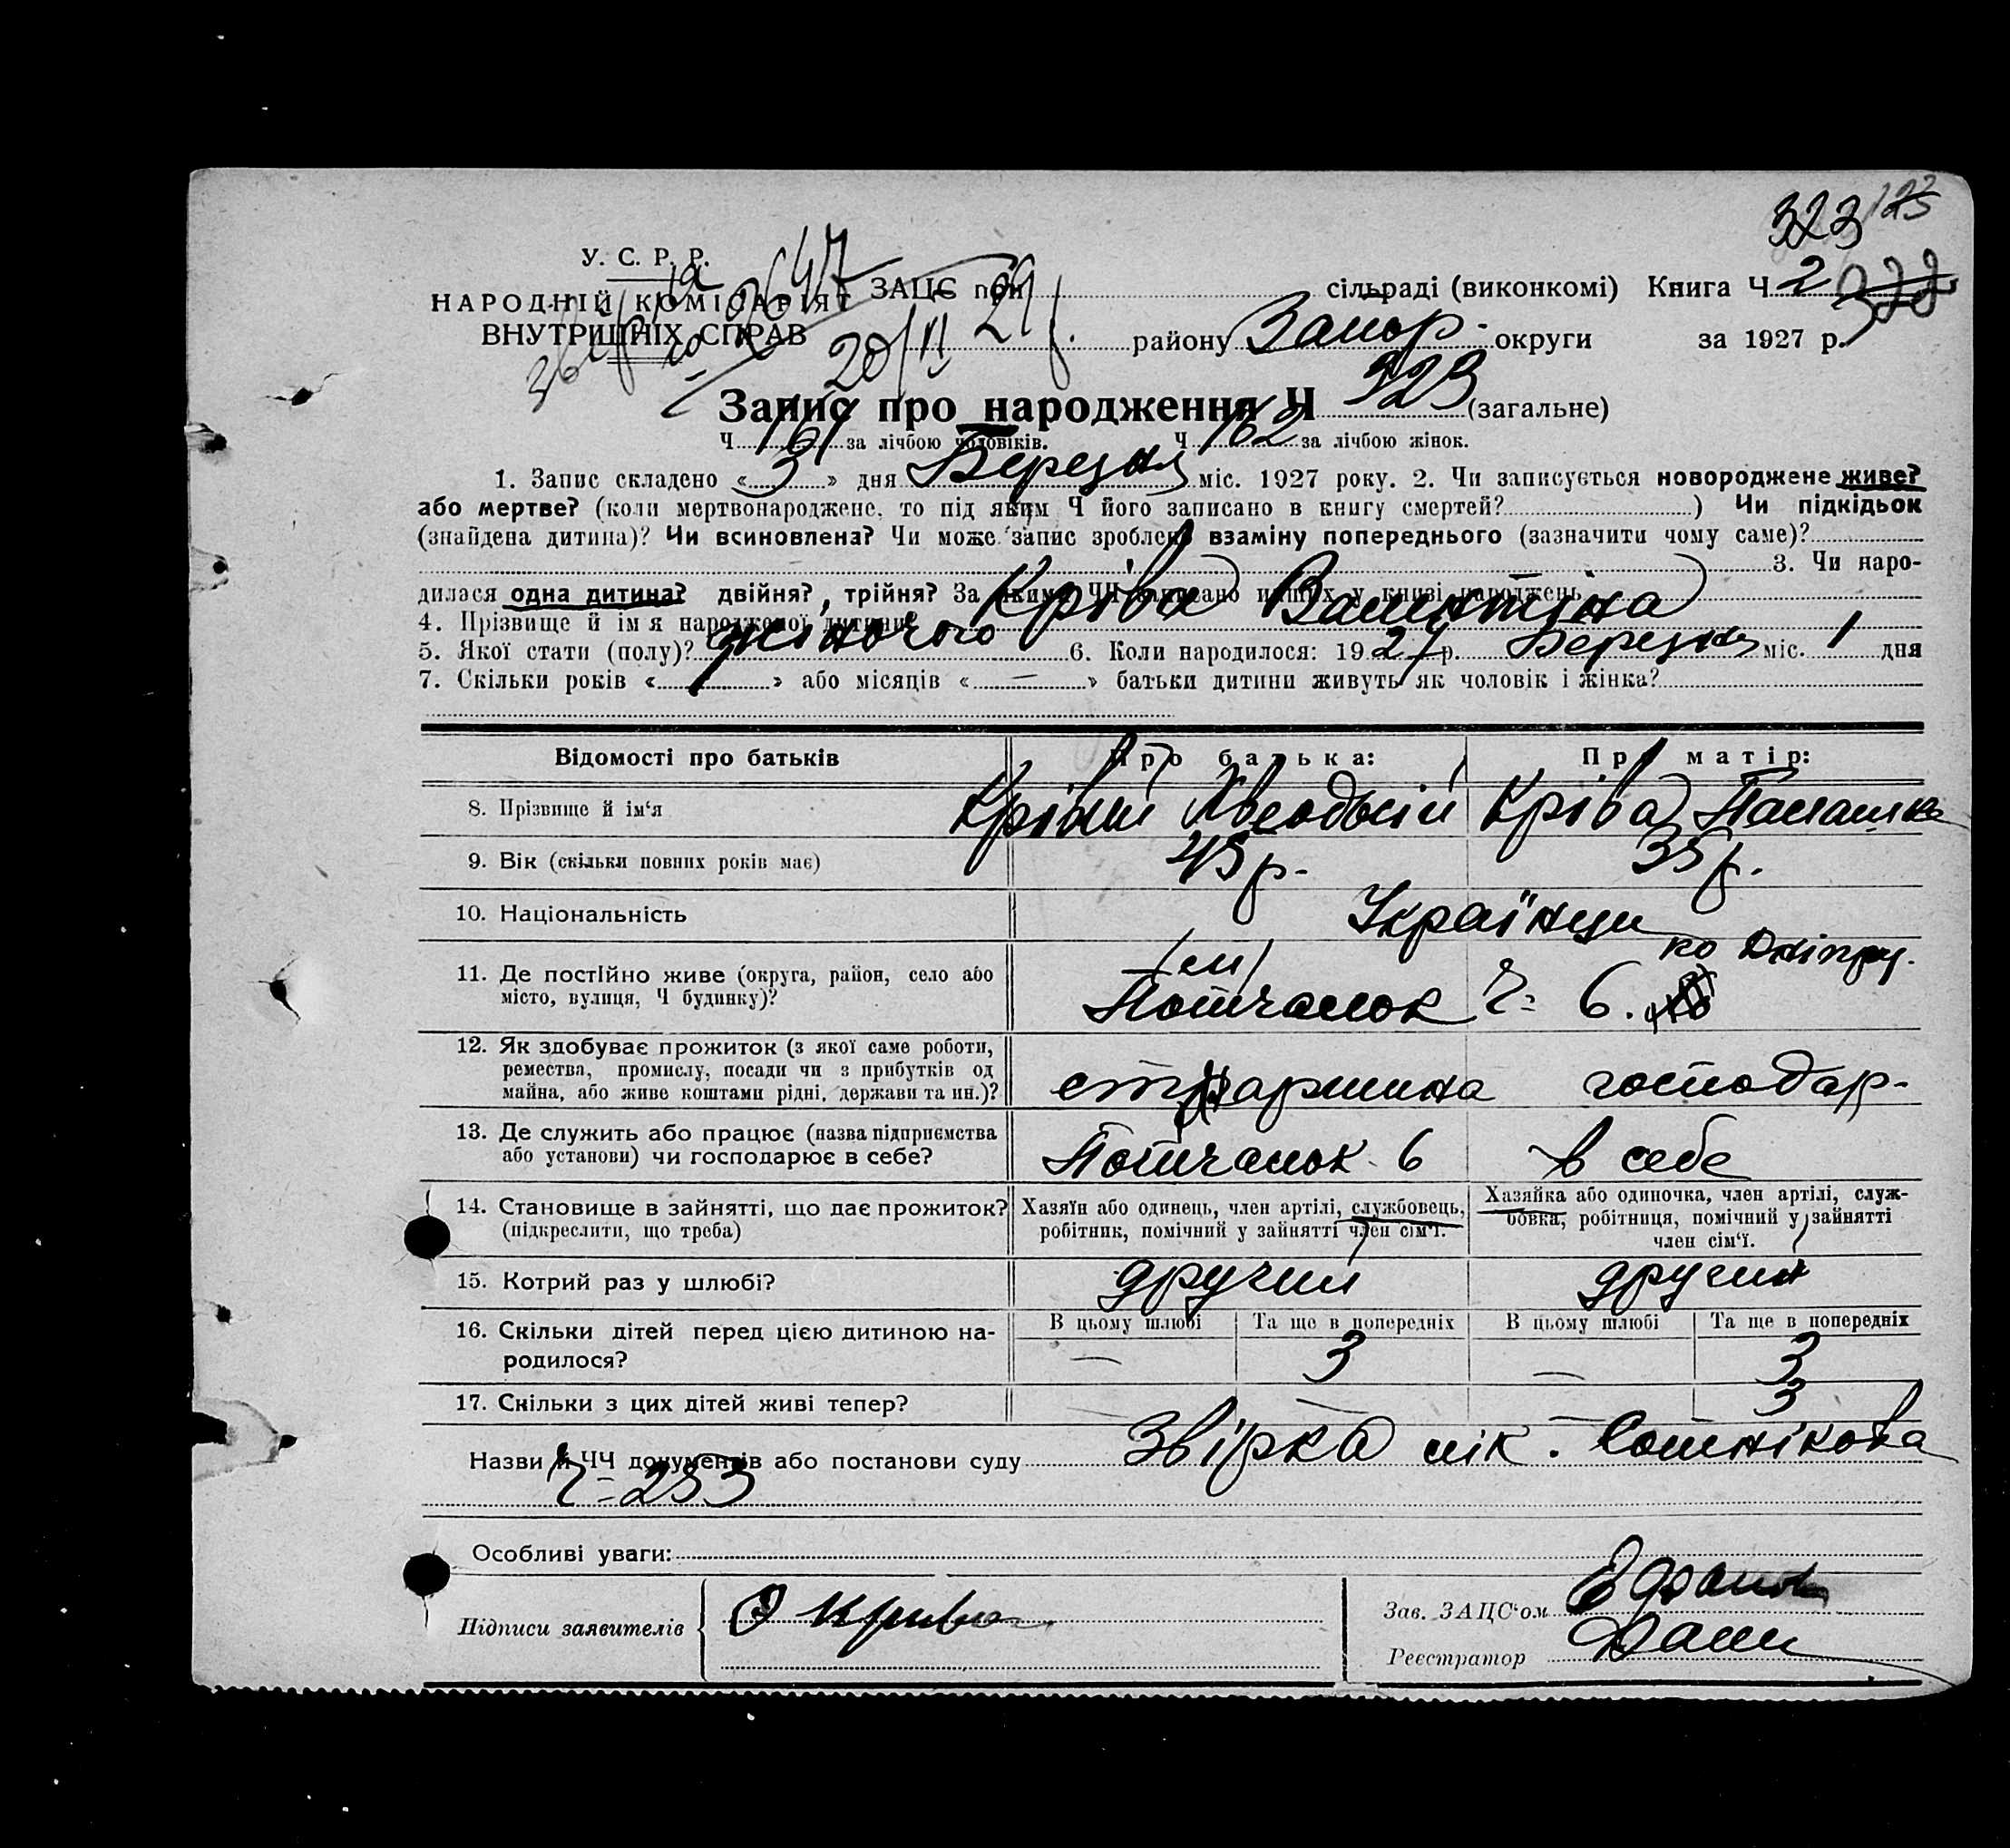 323 123
У. С. Р. Р.
НАРОДНІЙ КОМІСАРІЯТ
ВНУТРІШНІХ СПРАВ
ЗАЦС при сільраді (виконкомі) Книга Ч 2
20/II 29
району Запор. округи за 1927 р.
Запис про народження Ч 323 (загальне)
Ч 161 за лічбою чоловіків. Ч 162 за лічбою жінок.
1. Запис складено « 3 » дня Березня міс. 1927 року. 2. Чи записується новороджене живе?
або мертве? (коли мертвонароджене, то під яким Ч його записано в книгу смертей? ) Чи підкідьок
(знайдена дитина)? Чи всиновлена? Чи може запис зроблено взаміну попереднього (зазначити чому саме)?
3. Чи наро-
дилася одна дитина? двійня?, трійня? За якими ЧЧ записано инших у книзі народжень
4. Прізвище й ім я народженої дитини? Кріва Валинтіна
5. Якої стати (полу)? жіночого 6. Коли народилося: 19 27 р. Березня міс. 1 дня
7. Скільки років « 1 » або місяців « — » батьки дитини живуть як чоловік і жінка?
Відомості про батьків Про батька: Про матір:
8. Прізвище й ім‘я Крівий Хведосій Кріва Палашка
9. Вік (скільки повних років має) 45 р. 35 р.
10. Національність Українци
11. Де постійно живе (округа, район, село або
місто, вулиця, Ч будинку)? Потчанок Ч= 6. ко Дніпру.
12. Як здобуває прожиток (з якої саме роботи,
ремества, промислу, посади чи з прибутків од
майна, або живе коштами рідні, держави та ин.)? старшина господар-
13. Де служить або працює (назва підприємства
або установи) чи господарює в себе? Потчанок 6 в себе
14. Становище в зайнятті, що дає прожиток?
(підкреслити, що треба)
Хазяїн або одинець, член артілі, службовець,
робітник, помічний у зайнятті член сім‘ї.
Хазяйка або одиночка, член артілі, служ-
бовка, робітниця, помічний у зайнятті
член сім‘ї.
15. Котрий раз у шлюбі? другий другий
В цьому шлюбі Та ще в попередніх В цьому шлюбі Та ще в попередніх
16. Скільки дітей перед цією дитиною на-
родилося? — 3 — 3
17. Скільки з цих дітей живі тепер? — — — 3
Назви й ЧЧ документів або постанови суду Звірка лік. Сотнікова
Ч= 253
Особливі уваги:
Підписи заявителів Крива
Зав. ЗАЦС‘ом
Реєстратор